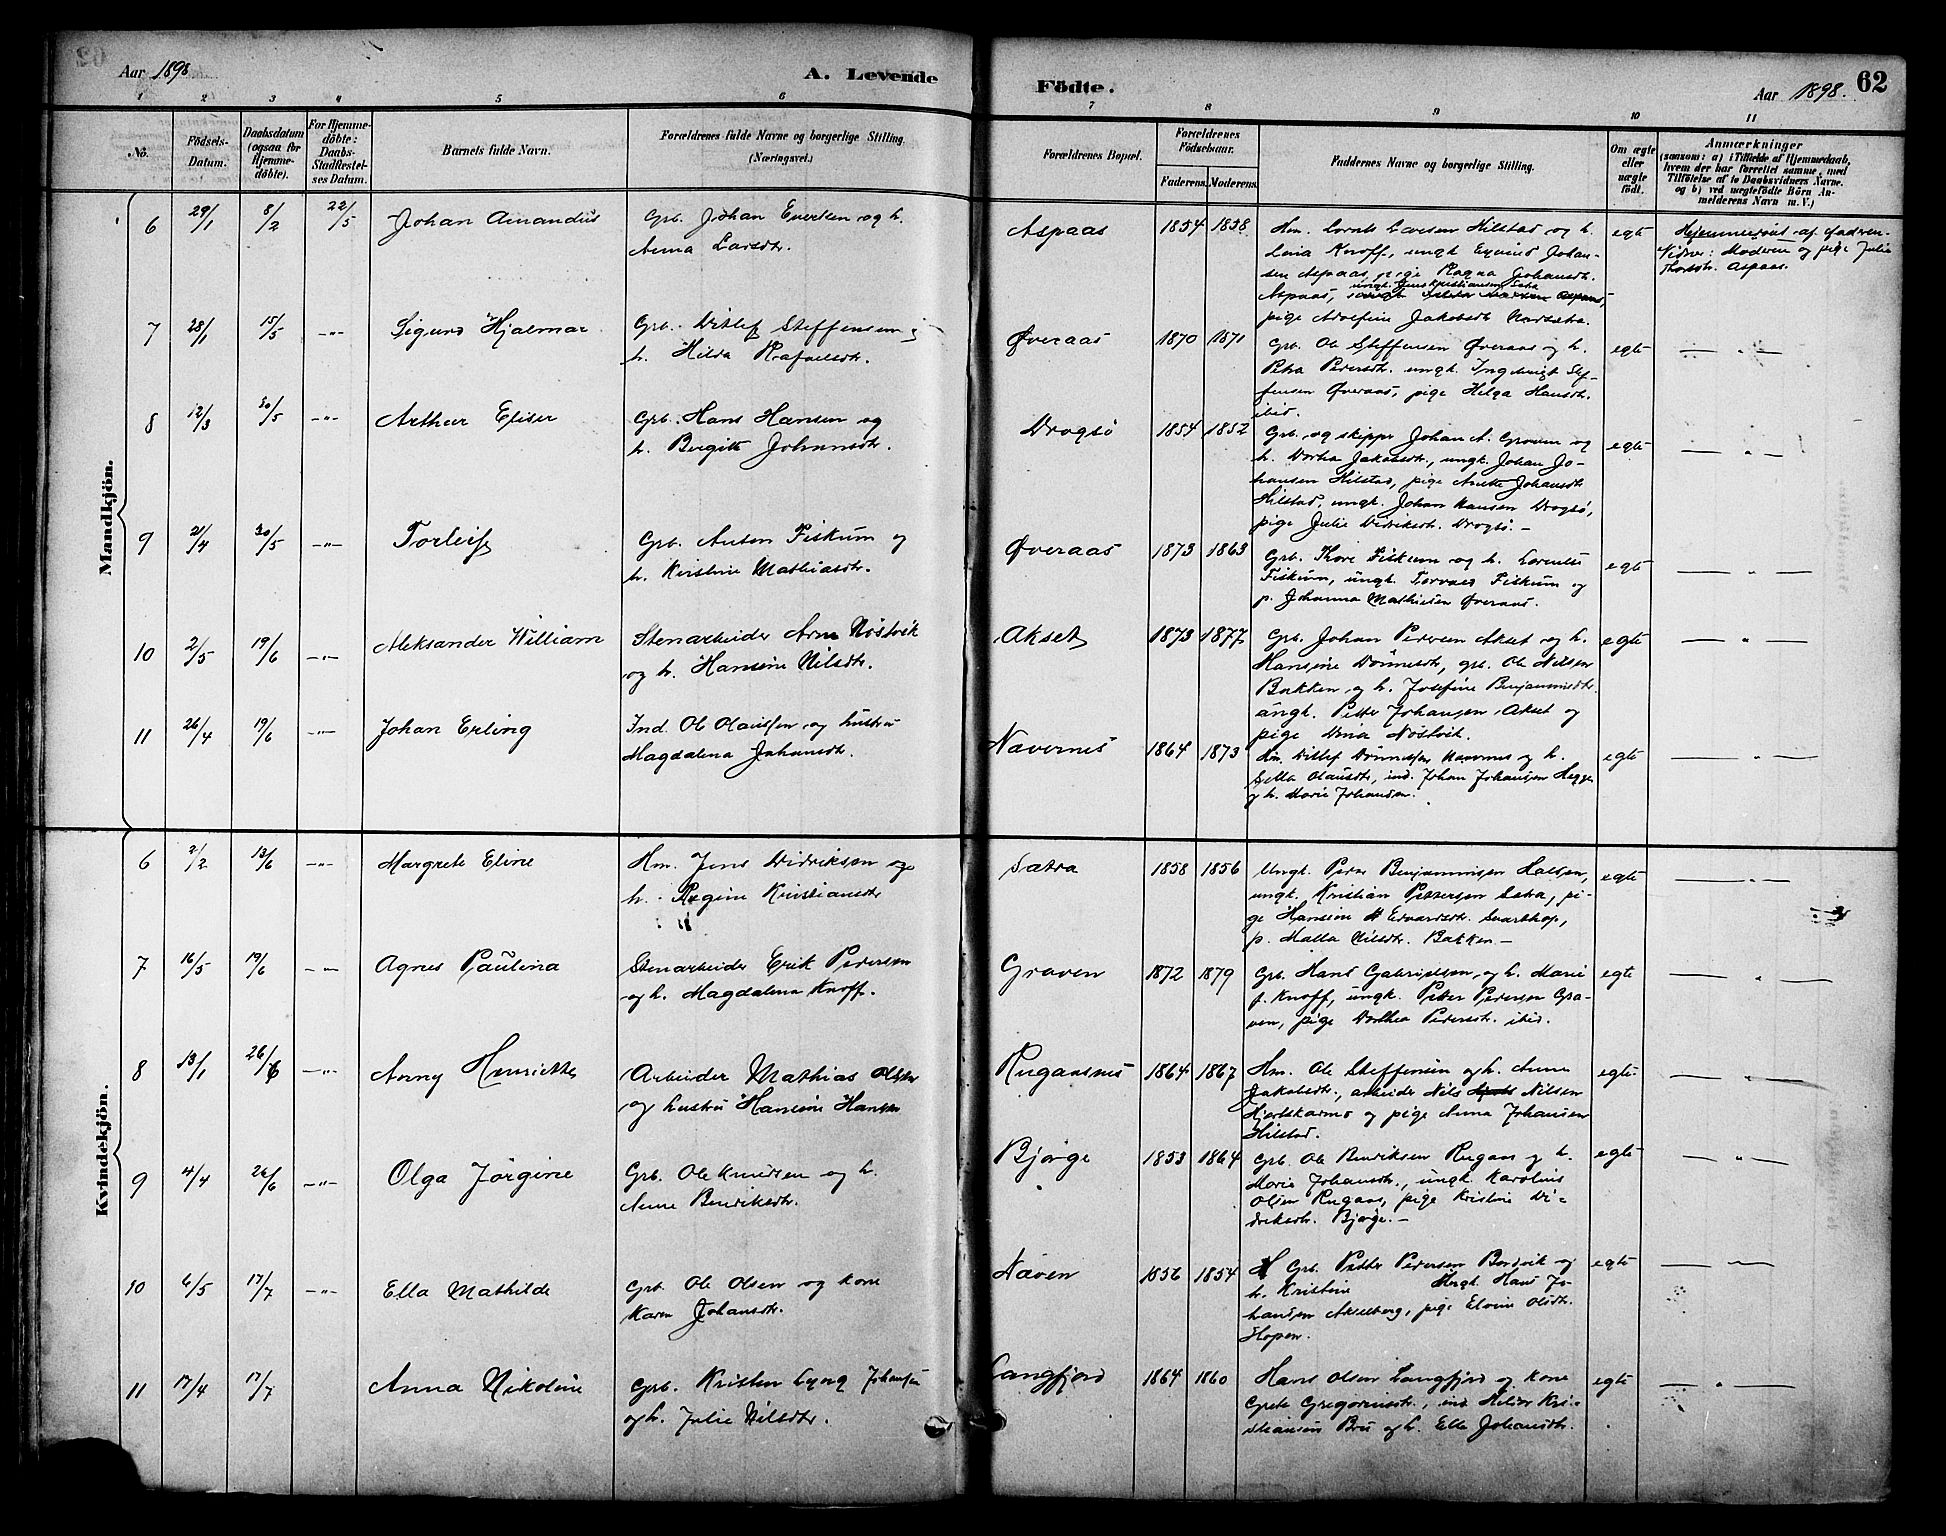 Aar 1898
A. Levende
Födte.
Aar 1898.
62
1 2 3 4 5 6 7 8 9 10 11
No.
Födsels-
Datum.
Daabsdatum
(ogsaa for
Hjemme-
döbte).
For Hjemme-
döbte:
Daabs-
Stadfæstel-
ses Datum.
Barnets fulde Navn.
Forældrenes fulde Navne og borgerlige Stilling.
(Næringsvei.)
Forældrenes Bopæl.
Forældrenes
Födselsaar.
Faderens. Moderens.
Faddernes Navne og borgerlige Stilling.
Om ægte
eller
uægte
födt.
Anmærkninger
(saasom: a) i Tilfælde af Hjemmedaab,
hvem der har forrettet samme, med
Tilföielse af to Daabsvidners Navne,
og b) ved uegtefödte Börn An-
melderens Navn m. V.)
Mandkjön.
6 29/1 8/2 22/5 Johan Amandus
Grb. Johan Evertsen og h.
Anna Larsdtr.
Aspaas 1854 1858.
Hm. Larsen Hilstad og h.
Lina Knoff, ungk. Johan-
sen Aspaas, pige Ragna Johansdtr.
ungk. Jens Kristiansen Satra
Aspaas,
pige Adolfine Jakobsdtr
egte
Hjemmedöbt af faderen
Vidner: Moderen og pige Julie
Aspaas.
7 28/1 15/5 -"- Sigurd Hjalmar
Grb. Ditlef Steffensen
h. Hilda Rafaelsdtr.
Øveraas 1870 1871
Grb. Ole Steffensen Øveraas og h.
Petra Pedersdtr. ungk. Ingebrigt Stef-
fensen Øveraas, pige Helga Hansdtr.
ibid.
egte — " —
8 12/3 30/5 -"- Arthur Eliser
Grb. Hans Hansen og
h. Bergitte Johansdtr.
Dragsö 1854 1852
Grb. og skipper Johan A. Graven og
h. Dorthea Jakobsdtr., ungk. Johan Jo-
hansen Hilstad, pige Anette Johansdtr
Hilstad, ungk. Johan Hansen Dragsö,
pige Julie Didriksdtr. Dragsö. —
egte — " —
9 21/4 30/5 -"- Torleif
Grb. Anton Fiskum og
h. Kirstine Mathiasdtr.
Øveraas 1873 1863
Grb. Thore Fiskum og h.
Fiskum, ungk. Fiskum og
p. Johanna Mathisen Øveraas.
egte — " —
10 2/5 19/6 -"- Aleksander William
Stenarbeider Arne Nöstvik
og h. Hansine Nilsdtr.
Akset 1873 1877
Grb. Johan Pedersen Akset og h.
Hansine Dönnesdtr, grb. Ole Nilsen
Bakken og h. Josefine Benjaminsdtr.
ungk. Petter Johansen Akset og
pige Dina Nöstvik.
egte — " —
11 26/4 19/6 -"- Johan Erling
Ind. Ole Olaussen og hustru
Magdalena Johansdtr.
Navernes 1864 1873
Hm. Ditlef Dönnesen Navernes og h.
Olausdtr, ind. Johan Johansen
og h. Marie Johansen.
egte — " —
Kvindekjön.
6 2/2 13/6 -"- Margrete Eline
Hm. Jens Didriksen og
h. Regine Kristiansdtr
Satra 1858 1856
Ungk. Peder Benjaminsen Halsen,
ungk. Kristian Pettersen Satra, pi-
ge Hansine Edvardsdtr. Svarthop,
p. Malla Nilsdtr. Bakken. —
egte — " —
7 16/5 19/6 -"- Agnes Paulina
Stenarbeider Erik Pedersen
og h. Magdalena Knoff.
Graven 1872 1879
Grb. Hans Gabrielsen og h. Marie
f. Knoff, ungk. Petter Pedersen Gra-
ven, pige Dorthea Pedersdtr. ibid.
egte — " —
8 13/1 26/6 -"- Anny Henriette
Arbeider Mathias Olsen
og hustru Hansine Hansen
Rugaasnes 1864 1867
Hm. Ole Steffensen og h. Anne
Jakobsdtr., arbeider Nils Nilsen
Hjortskarmo og pige Anna Johansen
Hilstad.
egte — " —
9 4/4 26/6 -"- Olga Jörgine
Grb. Ole Knudsen og h.
Anne Bendiksdtr.
Björge 1853 1864
Grb. Ole Bendiksen Rugaas og h.
Marie Johansdtr., ungk. Karolius
Olsen Rugaas, pige Kristine Di-
driksdtr. Björge. —
egte — " —
10 6/5 17/7 -"- Ella Mathilde
Grb. Ole Olsen og kone
Karen Johansdtr.
Naven 1856 1854
Grb. Petter Pedersen Bordvik og
h. Kristine Ungk. Hans Jo-
hansen Akselberg, pige Elvine Olsdtr.
Hopen.
egte — " —
11 17/4 17/7 Anna Nikoline
Grb. Kristen Georg Johansen
og h. Julie Nilsdtr.
Langfjord 1864 1860
Hans Olsen Langfjord og kone
Grete Gregoriusdtr., ind. Kri-
stiansen Bru og h. Ella Johansdtr.
egte — " —